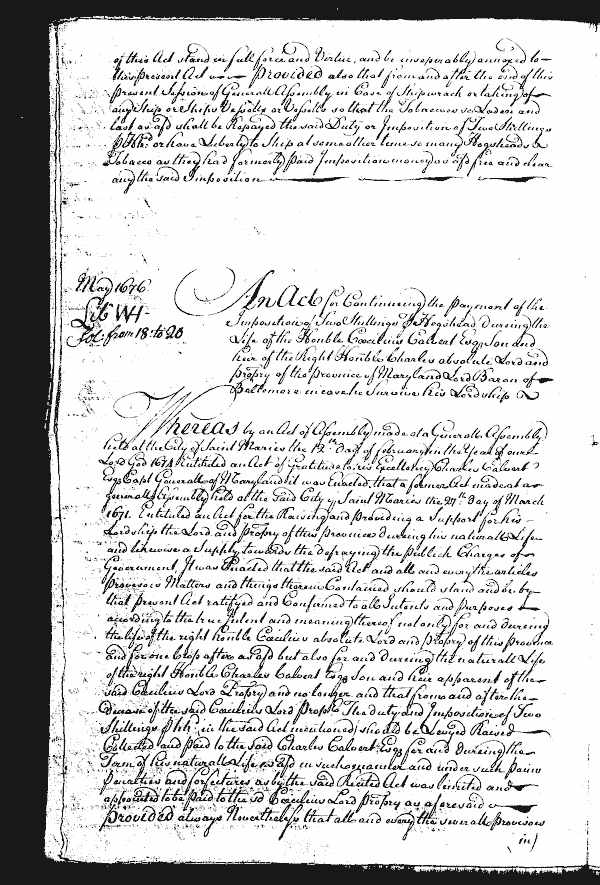 of this Act stand in full force and Vertue, and be inseperably annexed to
this present Act Provided also that from and after the end of this
present Session of Generall Assembly in Case of Shipwrack or takeing of
any Ship or Ships Vessell or Vessells so that the Tobaccoes so Laden and
Lost as afd shall be Repayed the said Duty or Imposition of Two Shillings
p hhd: or have Liberty to Ship at some other time so many Hogsheads
Tobacco as they had formerly paid Imposition money as afd free and clear
any the said Imposition
May 1676
Lib WH
Fol: from 18: to 20
An Act for Continueing the payment of the
Imposition of Two Shillings p Hogshead dureing the
Life of the Honble Cecilius Calvert Esqr. Son and
heir of the Right Honble Charles absolute Lord and
Propry of the province of Maryland Lord Baron of
Baltemore in case he Survive his Lordship
Whereas by an Act of Assembly made at a Generall Assembly
held at the City of Saint Maries the 12th Day of february in the Year of our
Lord God Entituled an Act of Gratitude to his Excellency Charles Calvert
Esqr Capt Generall of Maryland it was Enacted, that a former Act made at a
Generall Assembly held at the said City of Saint Maries the 27th Day of March
1671. Entituled an Act for the Raising and provideing a Support for his
Lordship the Lord and Propry of this province dureing his naturall Life
and likewise a Supply towards the defraying the publick Charges of
Government, It was Enacted that the said Act and all and every the articles
provisoes Matters and things therein Contained should stand and be by
that present Act ratifyed and Confirmed to all Intents and purposes
according to the true Intent and meaning thereof not only for and dureing
the life of the right honble Cecilius absolute Lord and Propry of this Province
and for one Crop after as afd but also for and dureing the naturall Life
of the right Honble Charles Calvert Esqr Son and heir apparent of the
said Cecilius Lord Propry and no longer and that from and after the
Decease of the said Cecilius Lord Propry The duty and Imposition of Two
Shillings p hhd: in the said Act mentioned, should be Levyed Raised
Collected and paid to the said Charles Calvert Esqr for and dureing the
Term of his naturall Life as afd in such manner and under such pains
penalties and forfeitures as by the said recited Act was limited and
appointed to be paid to the sd Cecilius Lord Propry as aforesaid
Provided always Nevertheless that all and every the severall Provisoes
in)